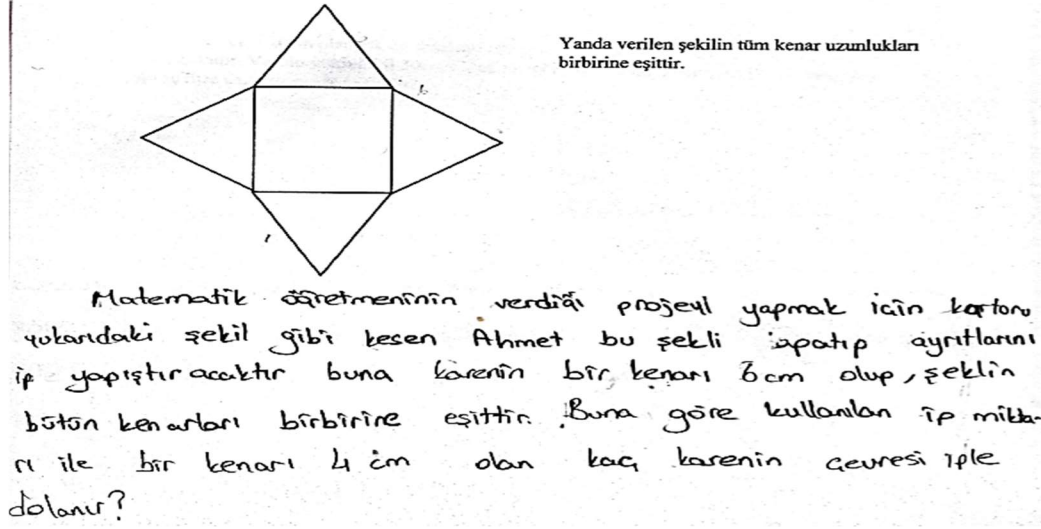 Yanda verilen şekilin tüm kenar uzunlukları
birbirine eşittir.
Matematik öğretmeninin verdiği projeyi yapmak için kartonu
yukarıdaki şekil gibi kesen Ahmet bu şekli kapatıp ayrıtlarını
ip yapıştıracaktır buna karenin bir kenarı 6cm olup, şeklin
bütün kenarları birbirine eşittir. Buna göre kullanılan ip mikta-
rı ile bir kenarı 4 cm olan kaç karenin çevresi iple
dolanır?